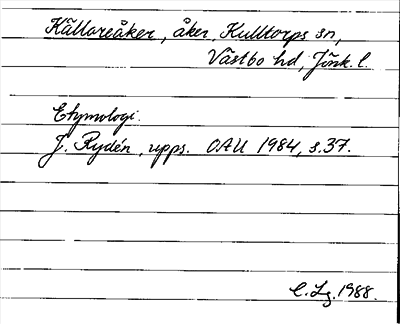 Källareåker, åker, Kulltorps sn,
Västbo hd, Jönk. l.
Etymologi.
J. Rydén, upps. OAU 1984, s. 37.
C. Lg. 1988.